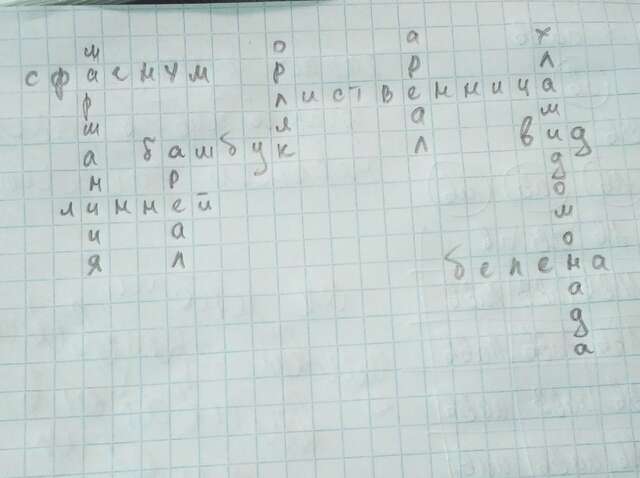 маршанция
орляк
ареал
хламидомонада
сфагнум
лиственница
бамбук
вид
ареал
линней
белена